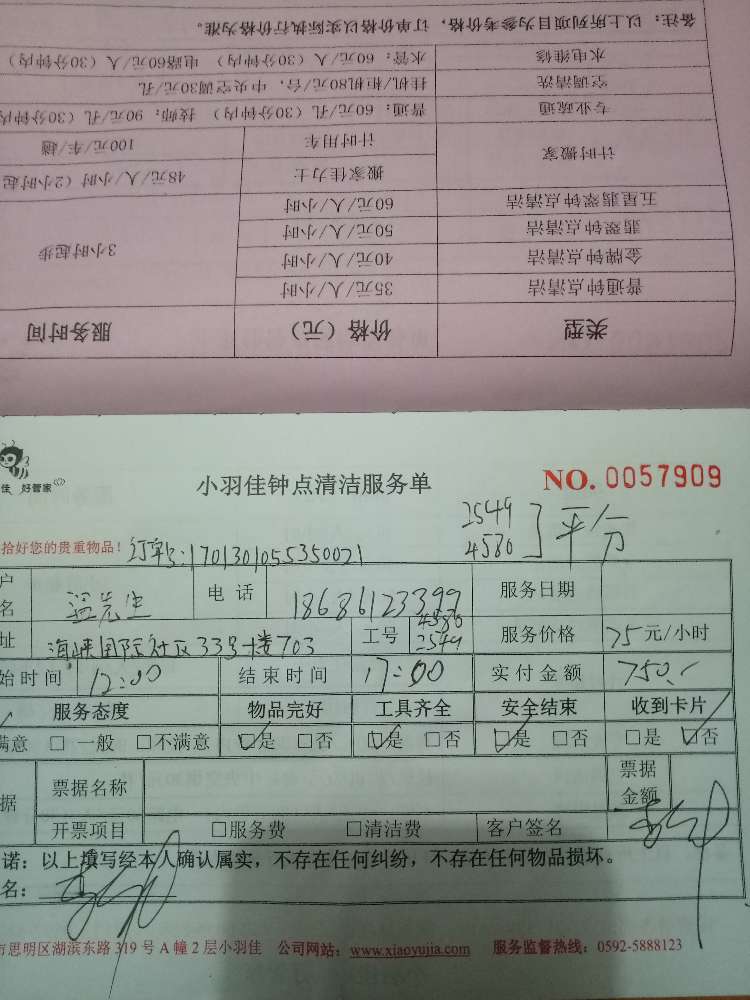 备注：以上所列项目为参考价格，订单价格以实际执行价格为准。
水电维修 水管：60元/人（30分钟内） 电路60元/人（30分钟内）
空调清洗 挂机/柜机80元/台，中央空调30元/孔
专业疏通 普通：60元/孔（30分钟内） 技师：90元/孔（30分钟内
计时搬家 计时用车 100元/车/趟
搬家佳力士 48元/人/小时（2小时起
五星翡翠钟点清洁 60元/人/小时 3小时起步
翡翠钟点清洁 50元/人/小时
金牌钟点清洁 40元/人/小时
普通钟点清洁 35元/人/小时
类型 价格（元） 服务时间
佳 好管家
小羽佳钟点清洁服务单 NO. 0057909
2549
4580 平分
拾好您的贵重物品！ 订单号：1701301055350021
户名 蓝先生 电话 18686123399 服务日期
址 海峡国际社区33号楼703 工号 4580 2549 服务价格 75元/小时
始时间 12:00 结束时间 17:00 实付金额 750.
服务态度 物品完好 工具齐全 安全结束 收到卡片
满意 □ 一般 □不满意 □是 □否 □是 □否 □是 □否 □是 □否
据 票据名称 票据金额
开票项目 □服务费 □清洁费 客户签名
诺：以上填写经本人确认属实，不存在任何纠纷，不存在任何物品损坏。
名：
市思明区湖滨东路319号A幢2层小羽佳 公司网站：www.xiaoyujia.com 服务监督热线：0592-5888123